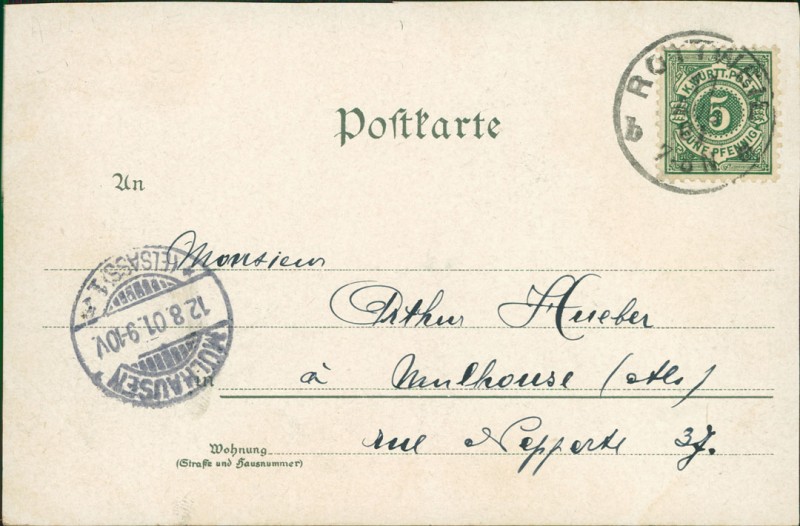 Postkarte
ROTTWEIL
K. WÜRTT. POST
5
FÜNF PFENNIG
7-8 N
An
Monsieur
MÜLHAUSEN
(ELSASS) 1
12.8.01.9-10V.
Arthur Hueber
in
à Mulhouse (Als)
Wohnung
rue 37.
(Straße und Hausnummer)